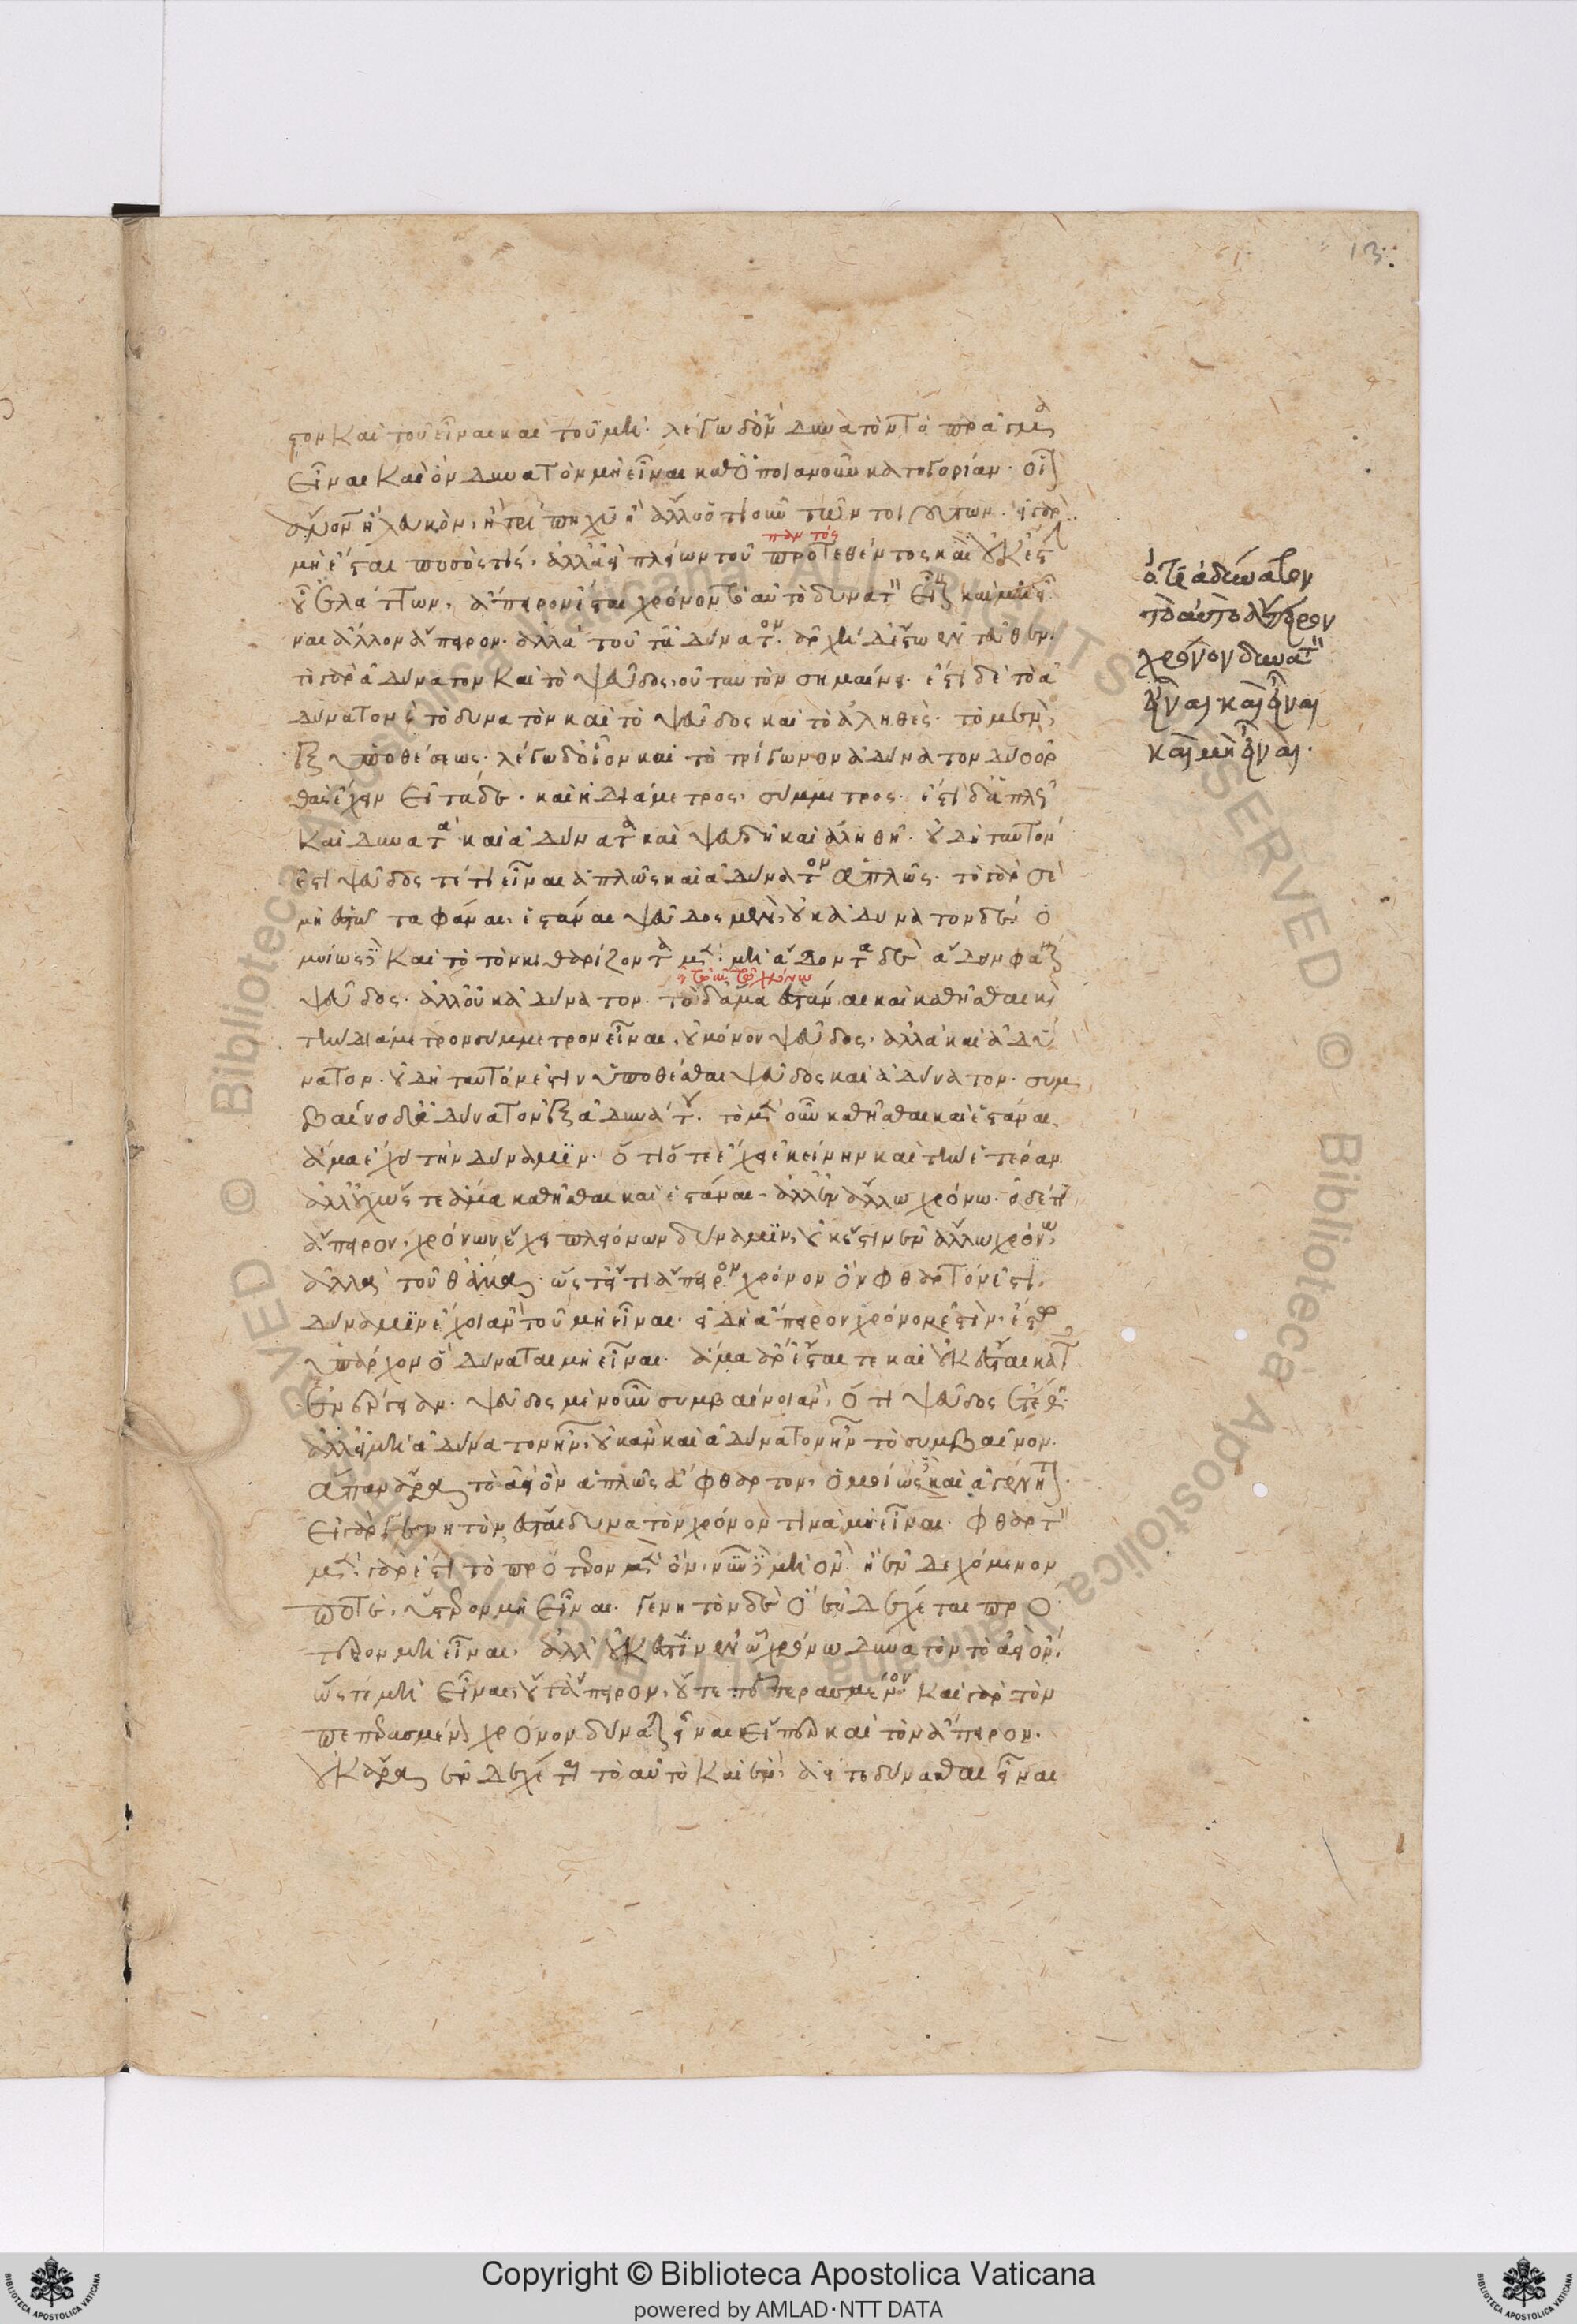 στον καὶ τοῦ εἶναι καὶ τοῦ μή· λέγω δ' ὃν δυνατὸν τὸ πρᾶγμα
εἶναι καὶ ὃν δυνατὸν μὴ εἶναι καθ' ὁποιανοῦν κατηγορίαν· οἷον
ἄνον ἢ λευκὸν, ἢ τρίπηχυ ἢ ἄλλο ὁτιοῦν τῶν τοιούτων· εἰ γὰρ
παντός
μὴ ἔσται ποσός τις, ἀλλ' ἀεὶ πλείων τοῦ προτεθέντος καὶ οὐκ ἔστιν
οὗ ἐλάττων, ἄπειρον ἔσται χρόνον τὸ αὐτὸ δυνατὸν εἶναι καὶ μὴ εἶ
ναι ἄλλον ἄπειρον· ἀλλὰ τοῦτο ἀδύνατον· ἀρχὴ δὲ ἔστω ἐντεῦθεν·
τὸ γὰρ ἀδύνατον καὶ τὸ ψεῦδος, οὐ ταυτὸν σημαίνει· ἔστι δὲ τὸ ἀ
δύνατον καὶ τὸ δυνατὸν καὶ τὸ ψεῦδος καὶ τὸ ἀληθές· τὸ μὲν
ἐξ ὑποθέσεως· λέγω δ' οἷον καὶ τὸ τρίγωνον ἀδύνατον δύο ὀρ
θὰς ἔχειν εἰ τάδε· καὶ ἡ διάμετρος, σύμμετρος· ἔστι δ' ἁπλῶς
καὶ δυνατὰ καὶ ἀδύνατα καὶ ψευδῆ καὶ ἀληθῆ· οὐ δὴ ταυτόν
ἐστι ψεῦδός τέ τι εἶναι ἁπλῶς καὶ ἀδύνατον ἁπλῶς· τὸ γὰρ σὲ
μὴ ἑστῶτα φάναι, ἑστάναι ψεῦδος μὲν, οὐκ ἀδύνατον δέ· ὁ
μοίως δὲ καὶ τὸ τὸν κιθαρίζοντα μὲν· μὴ ἄδοντα δὲ ἄδειν φάναι
ψεῦδος· ἀλλ' οὐκ ἀδύνατον· τὸ δ' ἅμα ἑστάναι καὶ καθῆσθαι καὶ
τὴν διάμετρον σύμμετρον εἶναι, οὐ μόνον ψεῦδος, ἀλλὰ καὶ ἀδύ
νατον· οὐ δὴ ταυτόν ἐστιν ὑποθέσθαι ψεῦδος καὶ ἀδύνατον· συμ
βαίνει δ' ἀδύνατον ἐξ ἀδυνάτου· τὸ μὲν οὖν καθῆσθαι καὶ ἑστάναι
ἅμα ἔχει τὴν δύναμιν· ὅτι ὅτε ἔχει ἐκείνην καὶ τὴν ἑτέραν
ἀλλ' οὐχ ὥστε ἅμα καθῆσθαι καὶ ἑστάναι· ἀλλ' ἐν ἄλλω χρόνω· εἰ δέ τι
ἄπειρον, χρόνων ἔχει πλειόνων δύναμιν, οὐκ ἔστιν ἐν ἄλλω χρόνω,
ἀλλὰ τοῦθ' ἅμα· ὥστ' εἴ τι ἄπειρον χρόνον ὂν φθαρτόν ἐστι,
δύναμιν ἔχοι ἂν τοῦ μὴ εἶναι· εἰ δὴ ἄπειρον χρόνον ἐστὶν, ἔστω
ὑπάρχον ὃ δύναται μὴ εἶναι· ἅμα ἄρ' ἔσται τε καὶ οὐκ ἔσται κατ'
ἐνέργειαν· ψεῦδος μὲν οὖν συμβαίνοι ἂν, ὅτι ψεῦδος ἐτέθη·
ἀλλ' εἰ μὴ ἀδύνατον ἦν, οὐκ ἂν καὶ ἀδύνατον ἦν τὸ συμβαῖνον·
ἅπαν ἄρα τὸ ἀεὶ ὂν ἁπλῶς ἄφθαρτον, ὁμοίως δὲ καὶ ἀγένητον·
εἰ γὰρ γενητὸν, ἔσται δυνατὸν χρόνον τινὰ μὴ εἶναι· φθαρτὸν
μὲν γάρ ἐστι τὸ πρότερον μὲν ὂν, νῦν δὲ μὴ ὂν· ἢ ἐνδεχόμενον
ποτὲ, ὕστερον μὴ εἶναι· γενητὸν δὲ ὃ ἐνδέχεται πρό
τερον μὴ εἶναι, ἀλλ' οὐκ ἔστιν ἐν ᾧ χρόνω δυνατὸν τὸ ἀεὶ ὂν,
ὥστε μὴ εἶναι, οὔτ' ἄπειρον, οὔτε πεπερασμένον καὶ γὰρ τὸν
πεπερασμένον χρόνον δύναται εἶναι εἴπερ καὶ τὸν ἄπειρον·
οὐκ ἄρα ἐνδέχεται τὸ αὐτὸ καὶ ἓν ἀεί τε δύνασθαι εἶναι
ὅτι ἀδύνατον
τὸ αὐτὸ ἄπειρον
χρόνον δυνατὸν
εἶναι καὶ εἶναι
καὶ μὴ εἶναι·
13
Copyright © Biblioteca Apostolica Vaticana
powered by AMLAD·NTT DATA